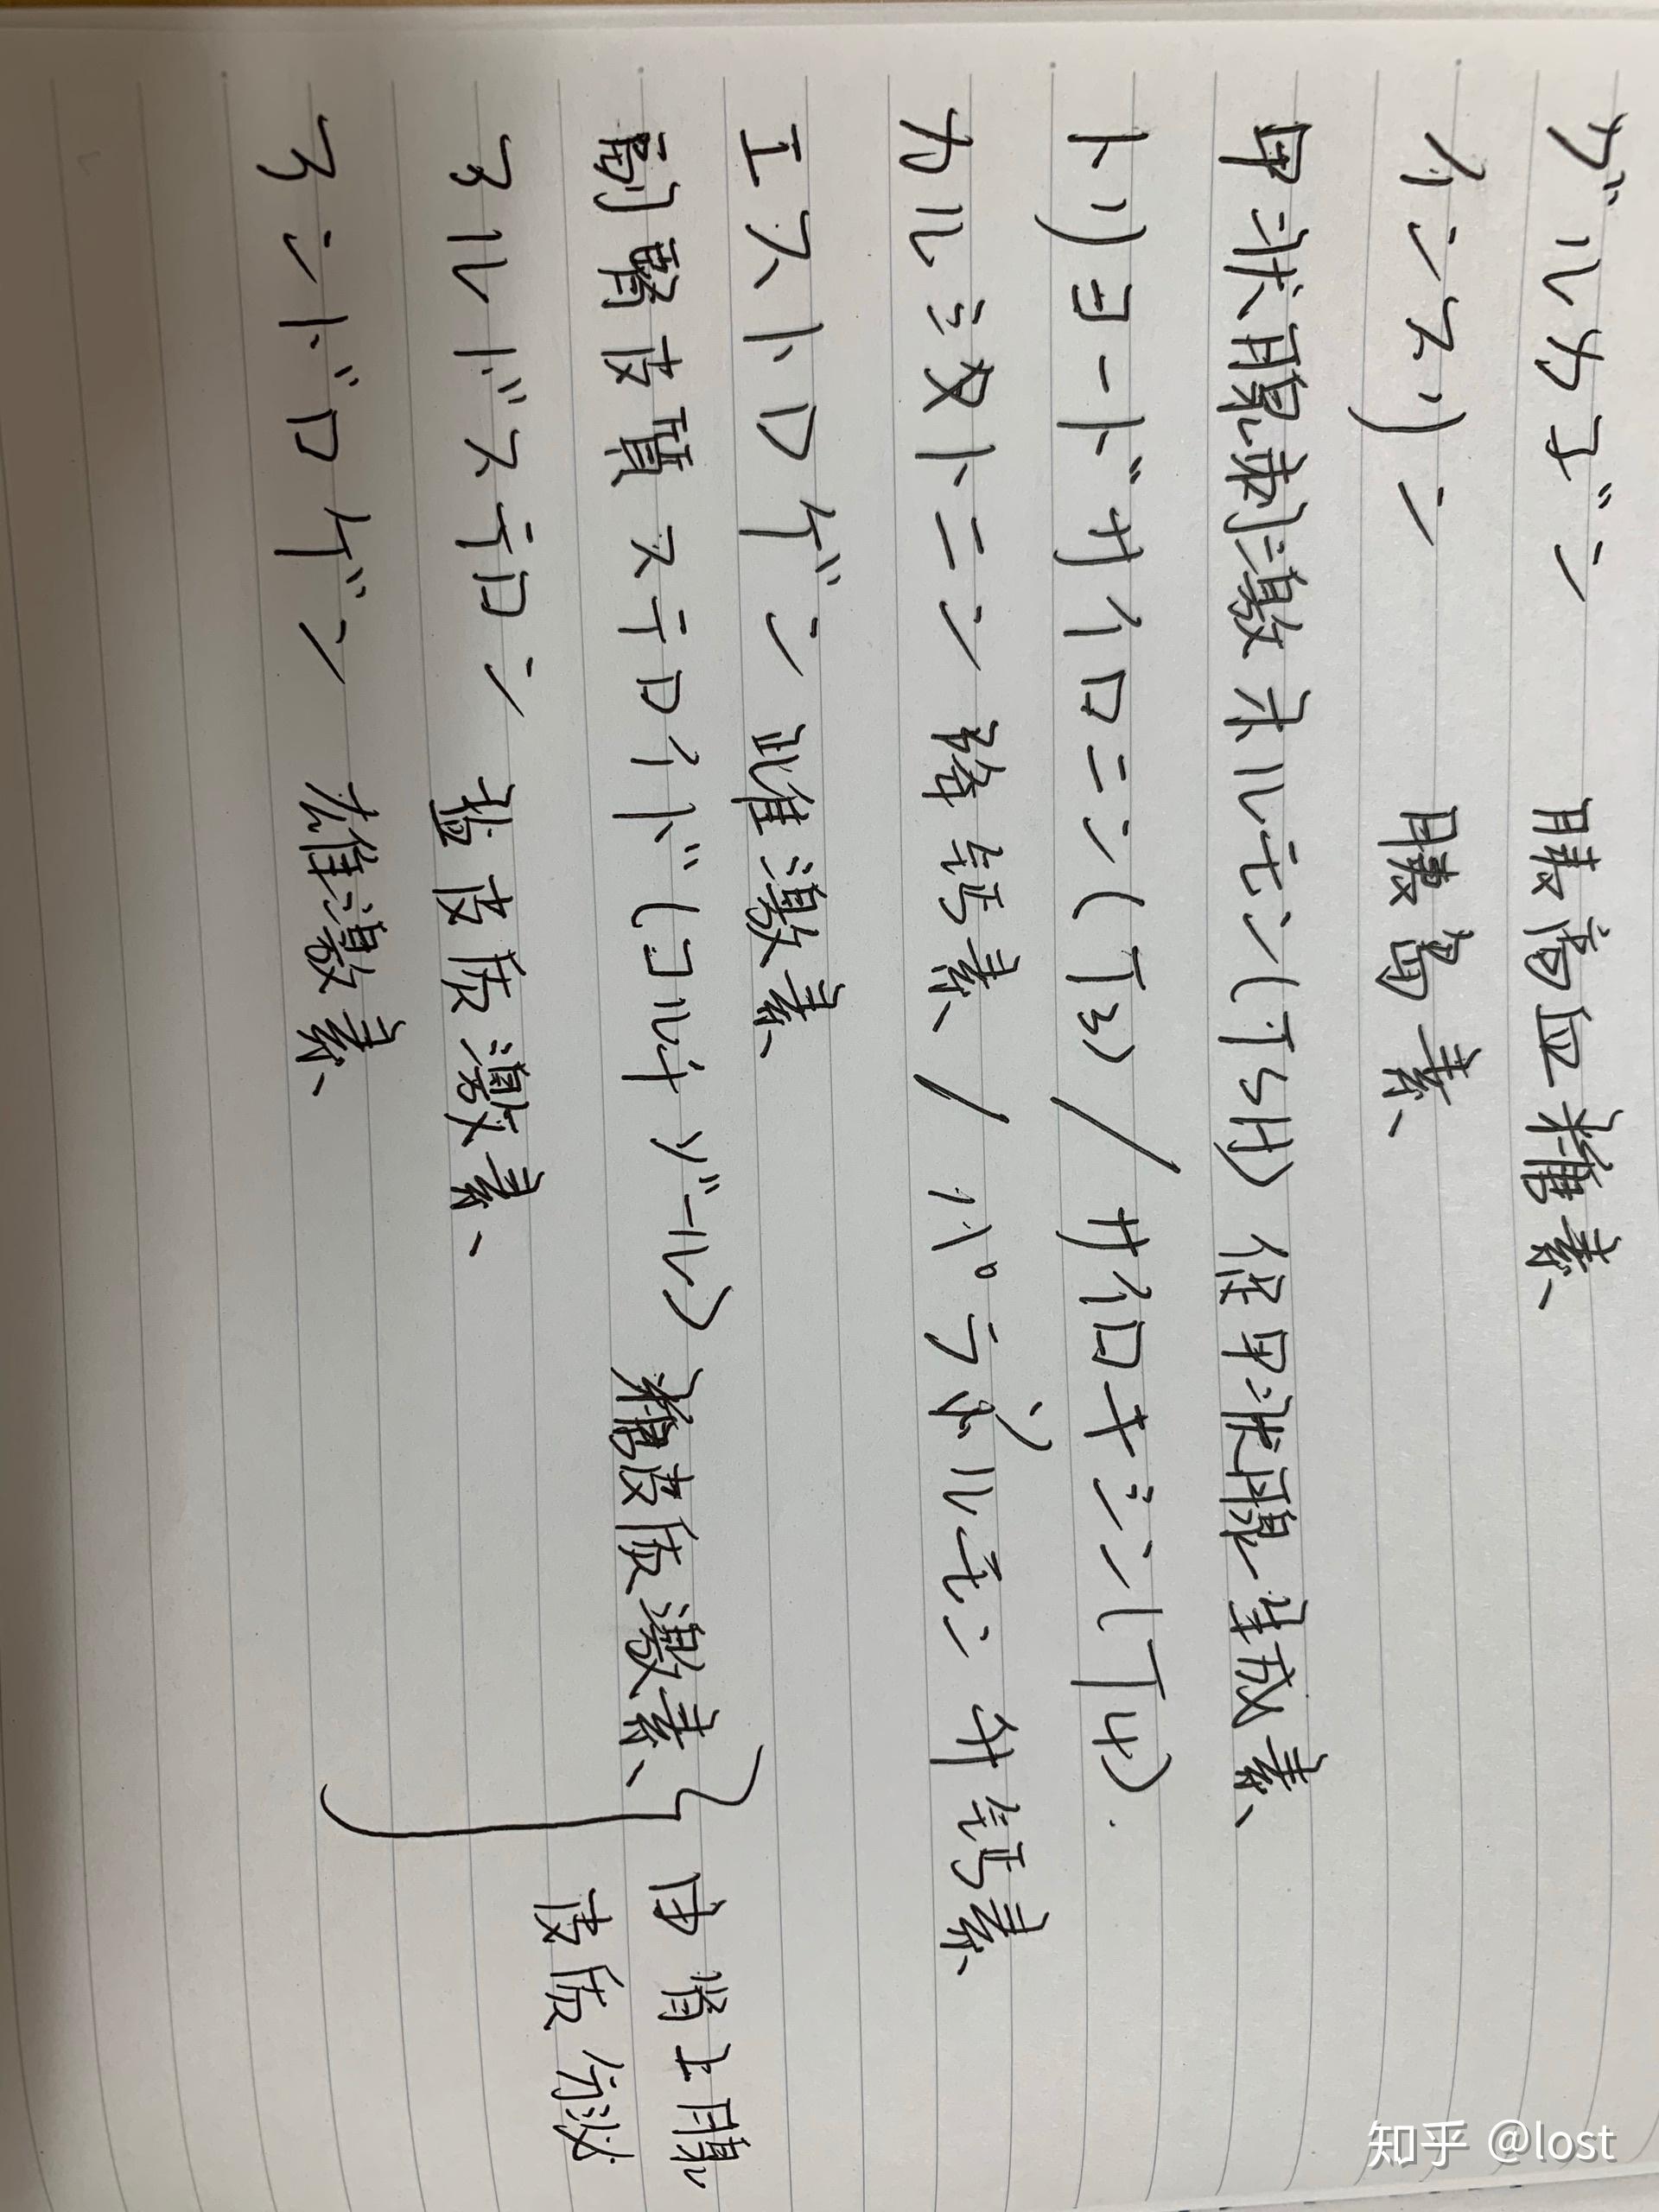 グルカゴン 胰高血糖素
インスリン 胰岛素
甲状腺刺激ホルモン(TSH) 促甲状腺生成素
トリヨードサイロニン(T3) / サイロキシン(T4).
カルシトニン 降钙素 / パラソルモン 升钙素
エストロゲン 雌激素
副腎皮質ステロイド(コルチゾール) 糖皮质激素
アルドステロン 盐皮质激素
アンドロゲン 雄激素
由肾上腺
皮质分泌
知乎 @lost